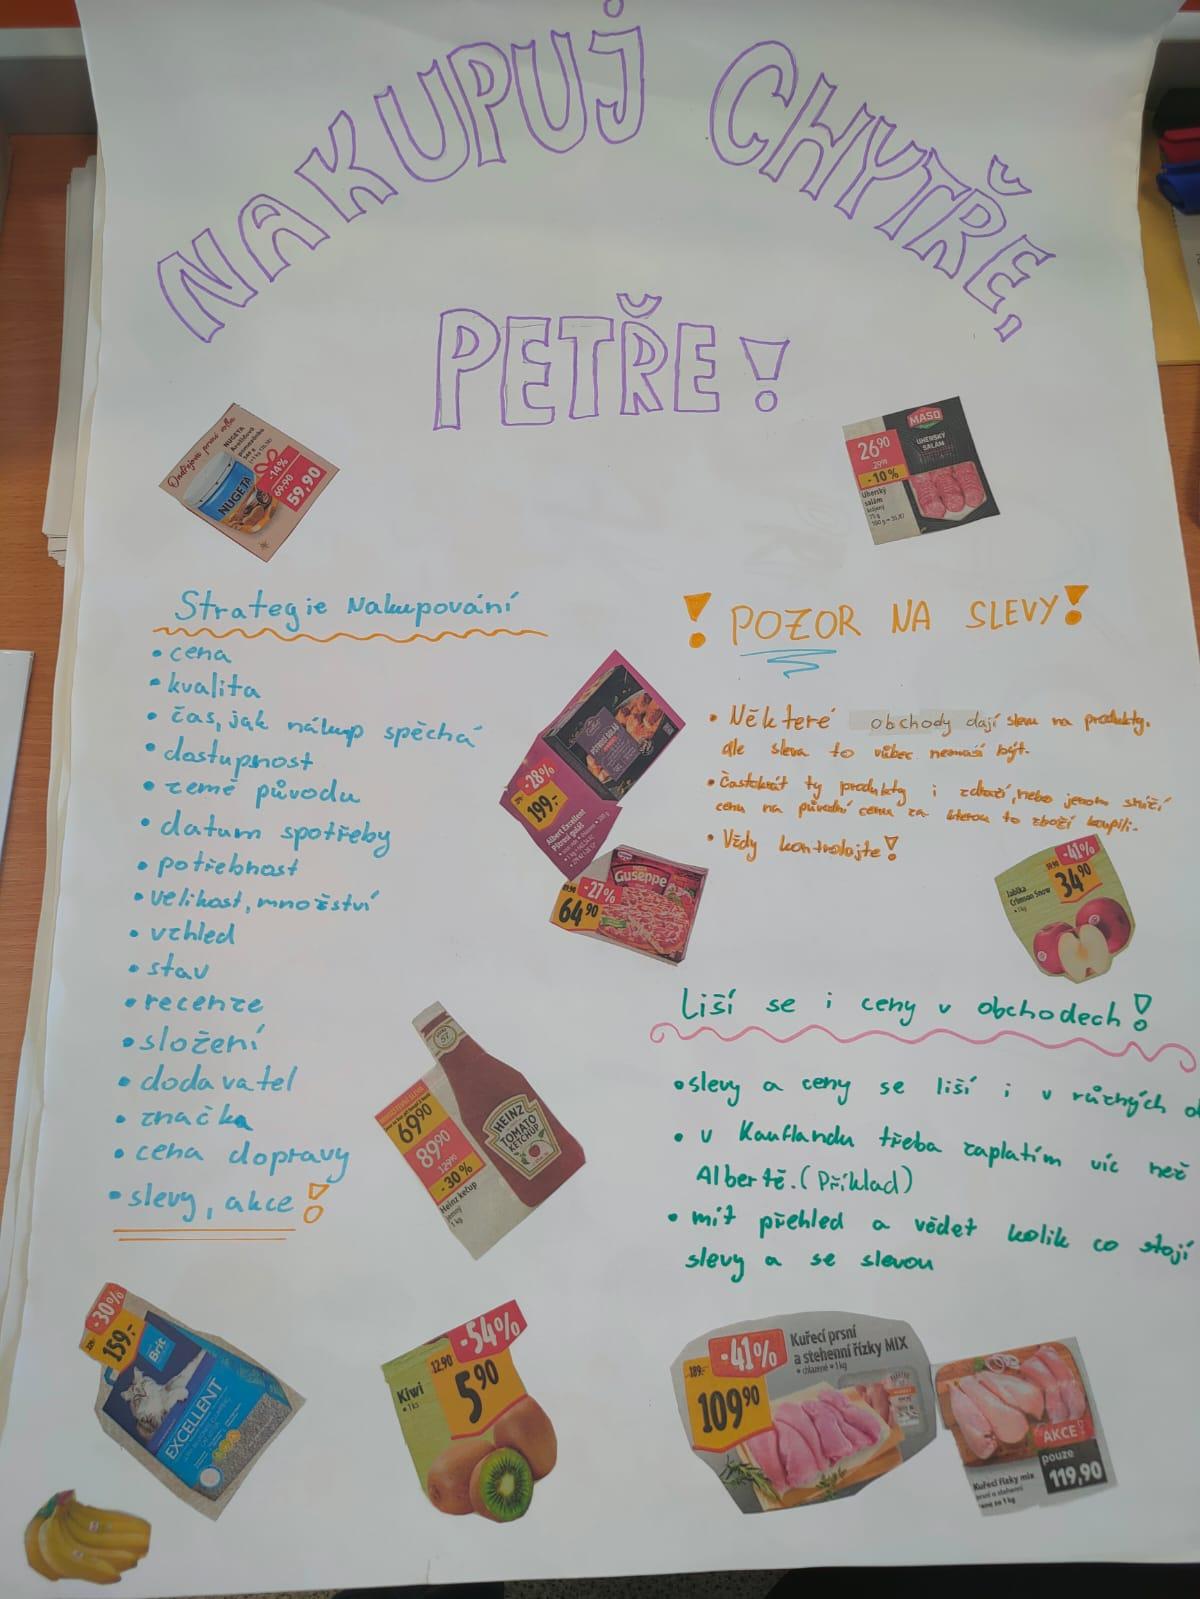 NAKUPUJ CHYTŘE,
PETŘE!
NUGETA
-14%
69,90
59,90
MASO
UHERSKÝ
SALÁM
26 90
-10%
Uherský
salám
Strategie Nakupování
• cena
• kvalita
• čas, jak nákup spěchá
• dostupnost
• země původu
• datum spotřeby
• potřebnost
• velikost, množství
• vzhled
• stav
• recenze
• složení
• dodavatel
• značka
• cena dopravy
• slevy, akce!
! POZOR NA SLEVY!
• Některé obchody dají slevu na produkty,
ale sleva to vůbec nemusí být.
• Častokrát ty produkty i zdraží, nebo jenom sníží
cenu na původní cenu za kterou to zboží koupili.
• Vždy kontrolujte!
-28%
199.-
Albert Excellent
Pštrosí guláš
Guseppe
-27%
64 90
-41%
34 90
Jablka
Crimson Snow
• 1 kg
Liší se i ceny v obchodech!
• slevy a ceny se liší i v různých
• v Kauflandu třeba zaplatím víc než
Albertě. (Příklad)
• mít přehled a vědět kolik co stojí
slevy a se slevou
HEINZ
TOMATO
KETCHUP
69 90
89 90
-30%
Heinz kečup
jemný
1 kg
-30%
159.-
Brit
EXCELLENT
-54%
12.90
5 90
Kiwi
• 1 ks
-41%
189.-
109 90
Kuřecí prsní
a stehenní řízky MIX
• chlazené • 1 kg
AKCE!
pouze
119,90
Kuřecí řízky mix